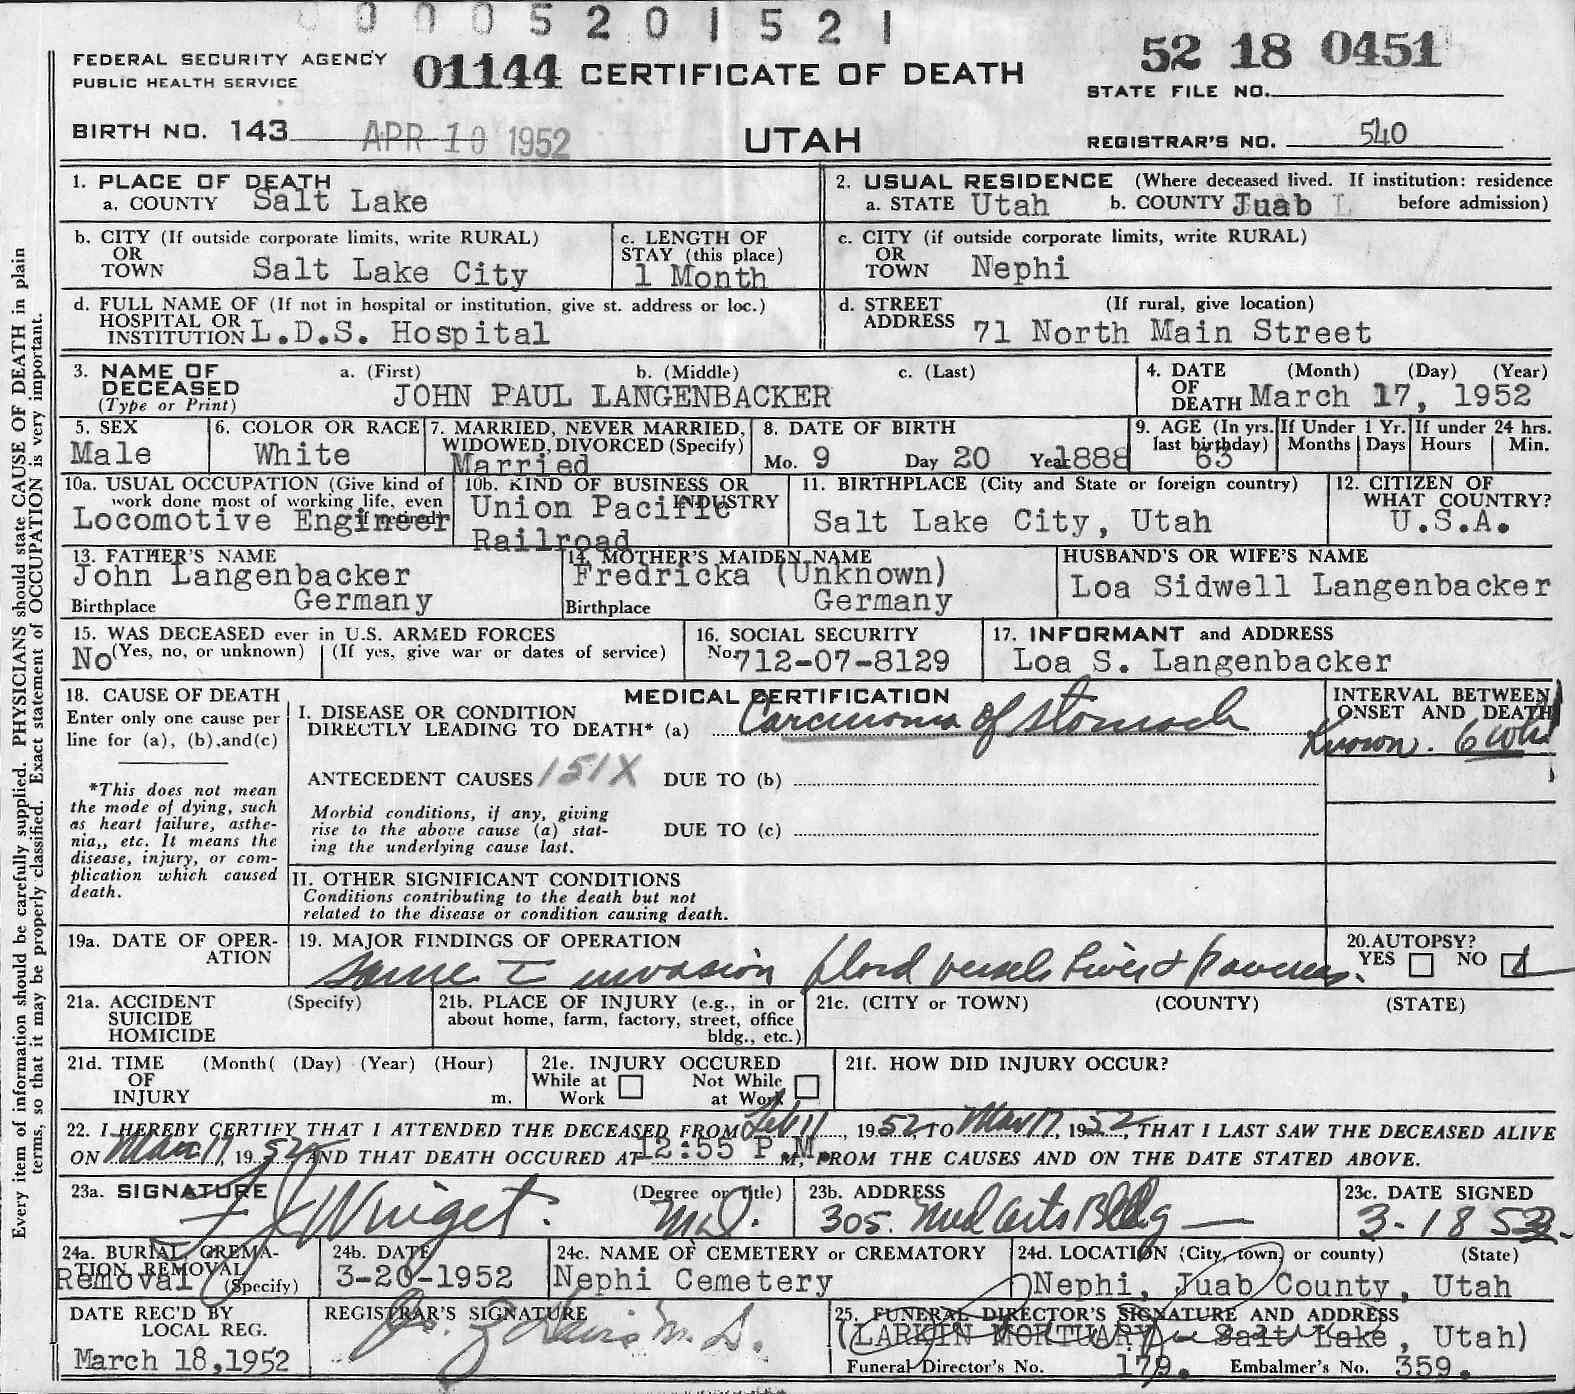 0 0 0 5 2 0 1 5 2 1
FEDERAL SECURITY AGENCY
PUBLIC HEALTH SERVICE
01144 CERTIFICATE OF DEATH
52 18 0451
STATE FILE NO.
BIRTH NO. 143
APR 10 1952
UTAH
REGISTRAR'S NO. 540
1. PLACE OF DEATH
a. COUNTY Salt Lake
2. USUAL RESIDENCE (Where deceased lived. If institution: residence before admission)
a. STATE Utah b. COUNTY Juab
b. CITY (If outside corporate limits, write RURAL)
OR
TOWN Salt Lake City
c. LENGTH OF
STAY (this place)
1 Month
c. CITY (if outside corporate limits, write RURAL)
OR
TOWN Nephi
d. FULL NAME OF (If not in hospital or institution, give st. address or loc.)
HOSPITAL OR
INSTITUTION L.D.S. Hospital
d. STREET (If rural, give location)
ADDRESS 71 North Main Street
3. NAME OF
DECEASED
(Type or Print)
a. (First) b. (Middle) c. (Last)
JOHN PAUL LANGENBACKER
4. DATE (Month) (Day) (Year)
OF
DEATH March 17, 1952
5. SEX
Male
6. COLOR OR RACE
White
7. MARRIED, NEVER MARRIED,
WIDOWED, DIVORCED (Specify)
Married
8. DATE OF BIRTH
Mo. 9 Day 20 Year 1888
9. AGE (In yrs.
last birthday)
63
If Under 1 Yr.
Months Days
If under 24 hrs.
Hours Min.
10a. USUAL OCCUPATION (Give kind of
work done most of working life, even
Locomotive Engineer
10b. KIND OF BUSINESS OR
INDUSTRY
Union Pacific
Railroad
11. BIRTHPLACE (City and State or foreign country)
Salt Lake City, Utah
12. CITIZEN OF
WHAT COUNTRY?
U.S.A.
13. FATHER'S NAME
John Langenbacker
Birthplace Germany
14. MOTHER'S MAIDEN NAME
Fredricka (Unknown)
Birthplace Germany
HUSBAND'S OR WIFE'S NAME
Loa Sidwell Langenbacker
15. WAS DECEASED ever in U.S. ARMED FORCES
No (Yes, no, or unknown) (If yes, give war or dates of service)
16. SOCIAL SECURITY
No. 712-07-8129
17. INFORMANT and ADDRESS
Loa S. Langenbacker
18. CAUSE OF DEATH
Enter only one cause per
line for (a), (b), and (c)
*This does not mean
the mode of dying, such
as heart failure, asthe-
nia,, etc. It means the
disease, injury, or com-
plication which caused
death.
MEDICAL CERTIFICATION
I. DISEASE OR CONDITION
DIRECTLY LEADING TO DEATH* (a) Carcinoma of stomach
INTERVAL BETWEEN
ONSET AND DEATH
Known. 6 wks
ANTECEDENT CAUSES 151X DUE TO (b)
Morbid conditions, if any, giving
rise to the above cause (a) stat-
ing the underlying cause last.
DUE TO (c)
II. OTHER SIGNIFICANT CONDITIONS
Conditions contributing to the death but not
related to the disease or condition causing death.
19a. DATE OF OPER-
ATION
19. MAJOR FINDINGS OF OPERATION
same c invasion blood vessels liver & pancreas.
20. AUTOPSY?
YES NO
21a. ACCIDENT (Specify)
SUICIDE
HOMICIDE
21b. PLACE OF INJURY (e.g., in or
about home, farm, factory, street, office
bldg., etc.)
21c. (CITY or TOWN) (COUNTY) (STATE)
21d. TIME (Month( (Day) (Year) (Hour)
OF
INJURY m.
21e. INJURY OCCURED
While at Work Not While at Work
21f. HOW DID INJURY OCCUR?
22. I HEREBY CERTIFY THAT I ATTENDED THE DECEASED FROM Feb 11, 1952, TO Mar 17, 1952, THAT I LAST SAW THE DECEASED ALIVE
ON Mar 17, 1952 AND THAT DEATH OCCURED AT 12:55 P.M. M, FROM THE CAUSES AND ON THE DATE STATED ABOVE.
23a. SIGNATURE (Degree or title)
M.D.
23b. ADDRESS
305. Med Arts Bldg
23c. DATE SIGNED
3-18 52
24a. BURIAL, CREMA-
TION, REMOVAL
(Specify)
Removal
24b. DATE
3-20-1952
24c. NAME OF CEMETERY or CREMATORY
Nephi Cemetery
24d. LOCATION (City, town, or county) (State)
Nephi, Juab County, Utah
DATE REC'D BY
LOCAL REG.
March 18, 1952
REGISTRAR'S SIGNATURE
M.D.
25. FUNERAL DIRECTOR'S SIGNATURE AND ADDRESS
(LARKIN MORTUARY Salt Lake, Utah)
Funeral Director's No. 179. Embalmer's No. 359.
Every item of information should be carefully supplied. PHYSICIANS should state CAUSE OF DEATH in plain
terms, so that it may be properly classified. Exact statement of OCCUPATION is very important.